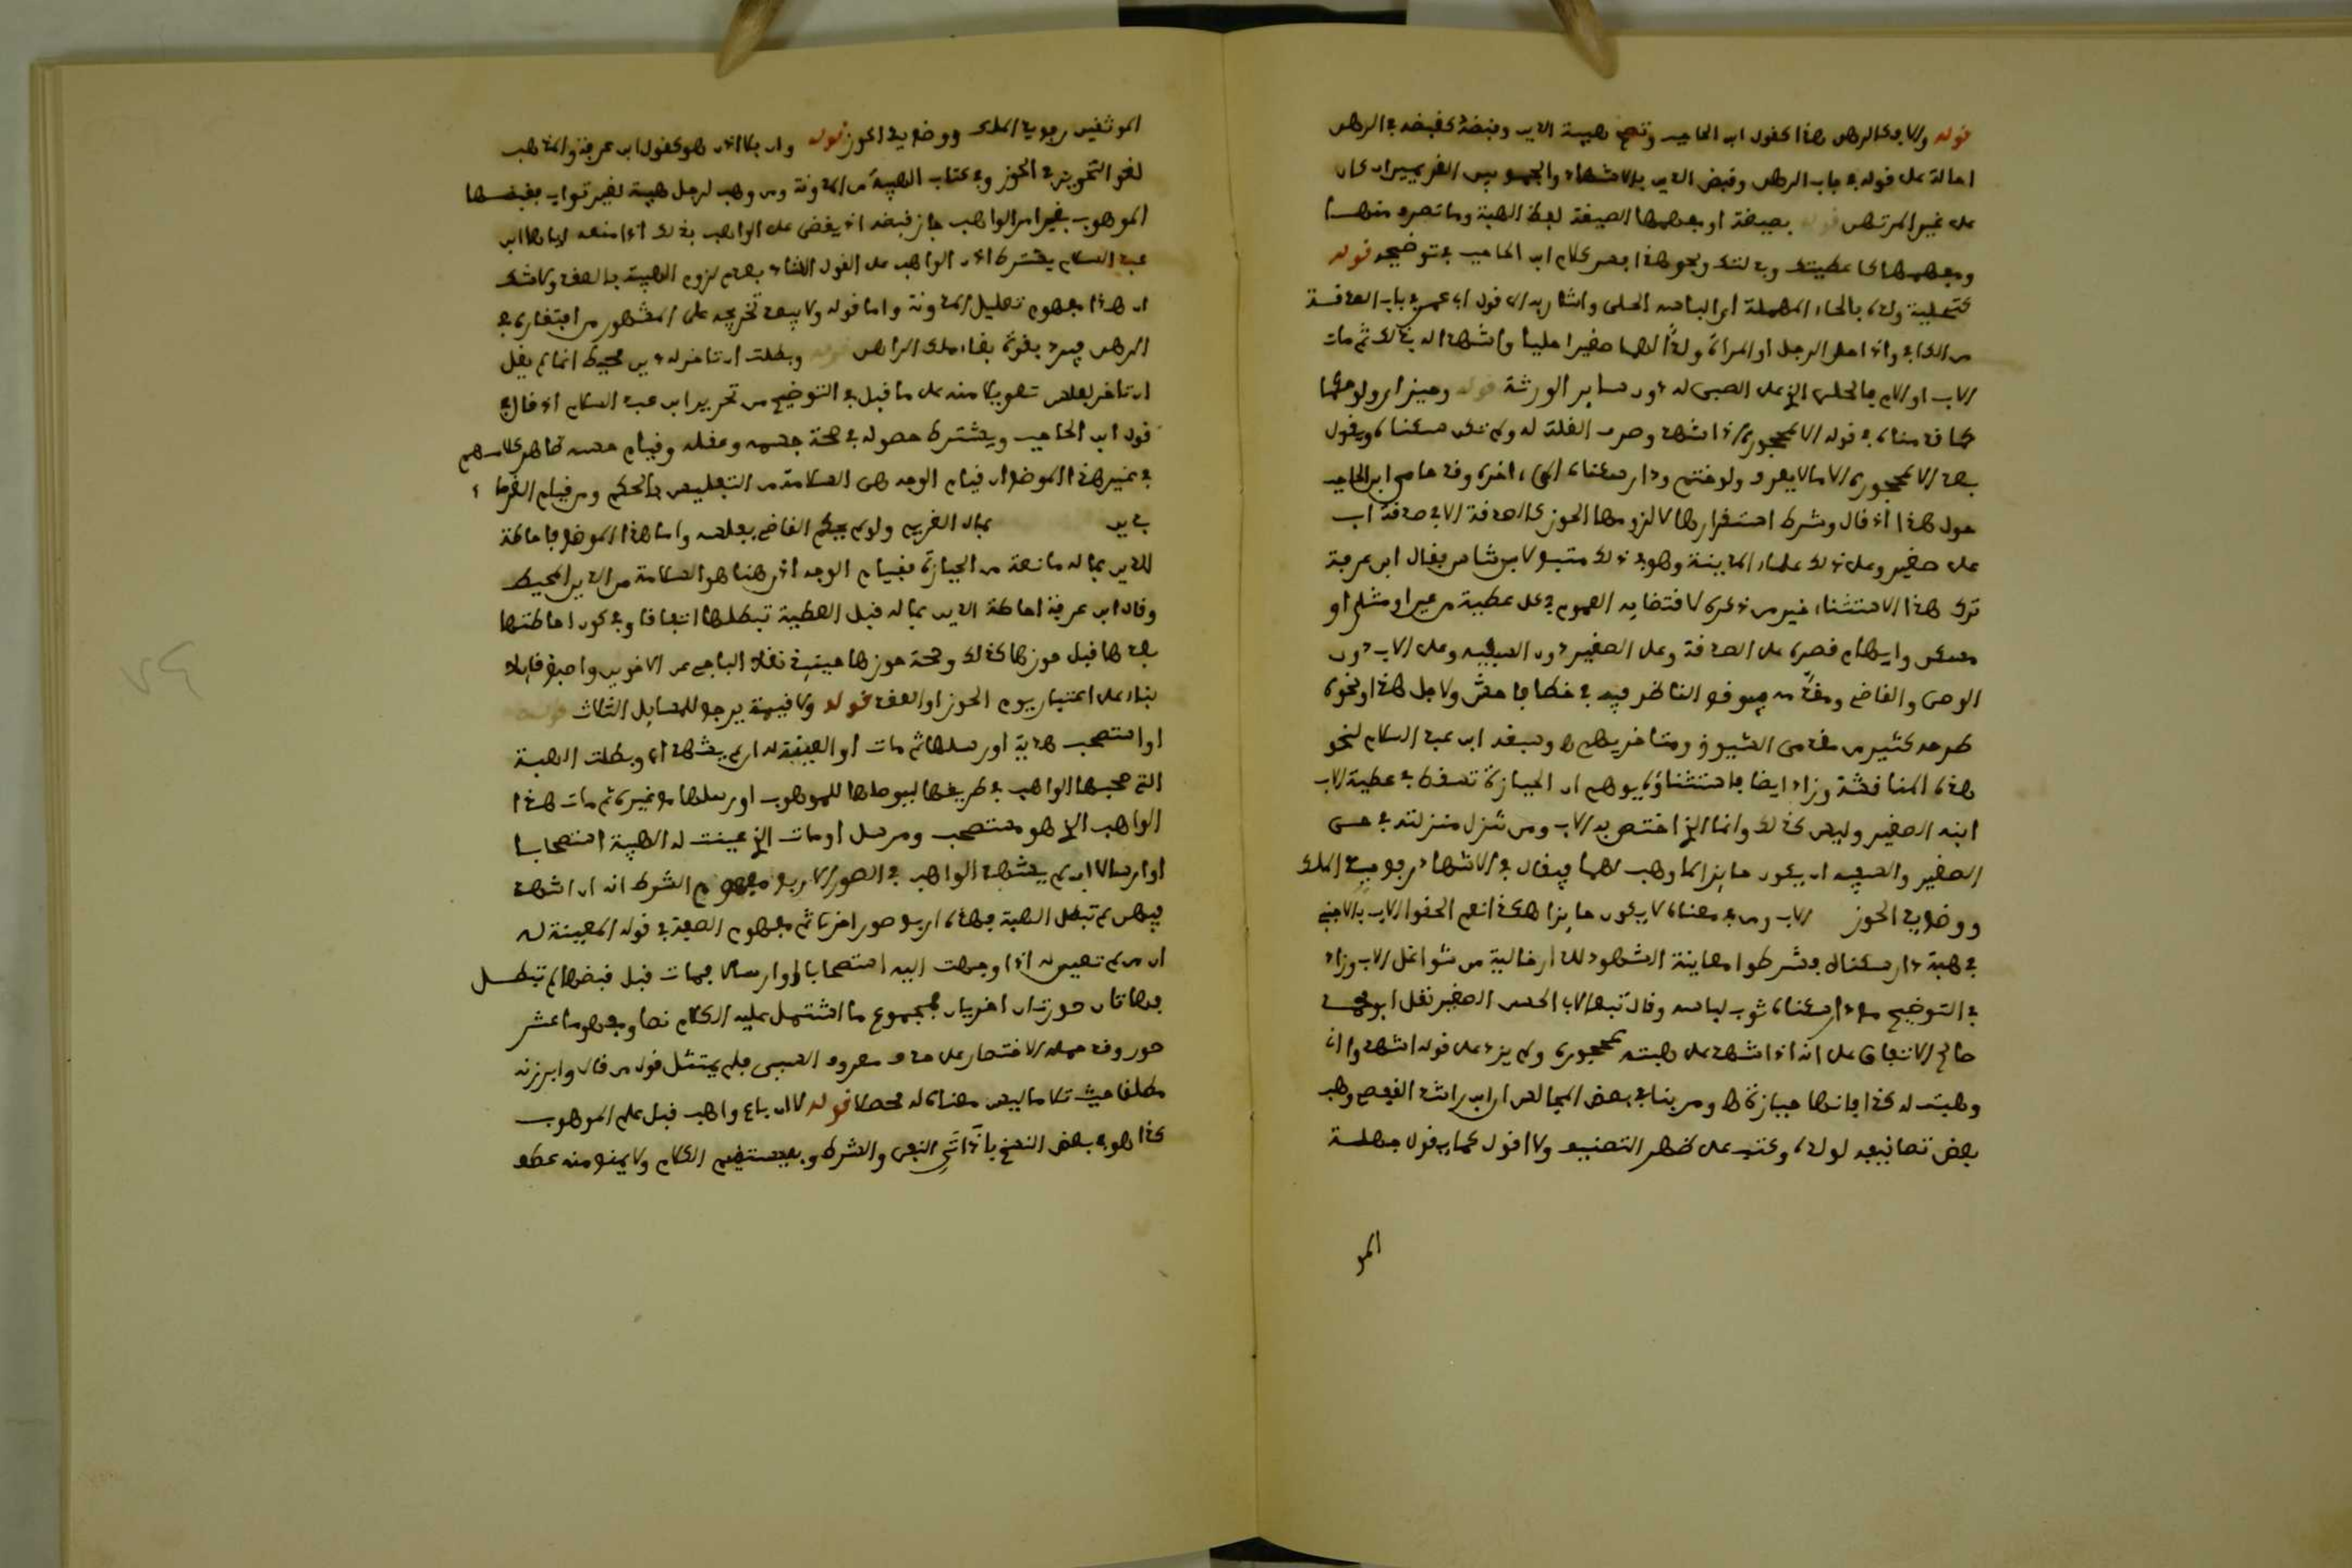 قوله وإلا فكالرهن هذا كقول ابن الحاجب وتصح هبة الدين وقبضه كقبضه في الرهن
احالة على قوله في باب الرهن وقبض الدين بالاشهاد والجمع بين الغريمين ان كان
على غير المرتهن قوله بصيغة او مفهمها الصيغة لفظ الهبة وما تصرف منها
ومفهمها كاعطيتك وبذلتك ونحو هذا فسر كلام ابن الحاجب في توضيحه قوله
كتحلية ولده بالحاء المهملة اي الباسه الحلي واشار به الى قول ابي عمر في باب الصدقة
من الكافي واذا حلى الرجل او المراة ولدا لهما صغيرا حليا واشهدا له بذلك ثم مات
الاب او الام فالحلي الذي على الصبي له دون ساير الورثة قوله وحيز ان ولو
كما قدمناه في قوله الا لمحجوره اذا اشهد وصرف الغلة له ولم تكن سكناه ويقول
بعد الا لمحجوره الا ما لا يعرف ولو ختم ودار سكناه الى اخره وقد حامى ابن الحاجب
حول هذا اذ قال وشرط استقرارها لا لزومها الحوز كالصدقة الا في صدقة اب
على صغير وعلى ذلك علماء المدينة وهو في ذلك متبع لابن شاس فقال ابن عرفة
ترك هذا الاستثناء خير من ذكره لاقتضايه العموم في كل عطية من عين او مثلي او
مسكن وايهام قصره على الصدقة وعلى الصغير دون السفيه وعلى الاب دون
الوصي والقاضي ومقدم فيوقع الناظر فيه في خطا فاحش ولاجل هذا ونحوه
طرحه كثير من مقدمي الشيوخ ومتاخريهم ه وسبقه ابن عبد السلام لنحو
هذه المناقشة وزاد ايضا فاستثناؤه يوهم ان الحيازة تسقط في عطية الاب
ابنه الصغير وليس كذلك وانما الذي اختص به الاب ومن تنزل منزلته في حق
الصغير والسفيه ان يكون حايزا لما وهب لهما فيقال في الاشهاد رفع يد الملك
ووضع يد الحوز الاب ومن في معناه لا يكون حايزا هكذا نعم الحقوا الاب بالاجنبي
في هبة دار سكناه فشرطوا معاينة الشهود للدار خالية من شواغل الاب وزاد
في التوضيح مع دار سكناه ثوب لباسه وقال تبعا لابي الحسن الصغير نقل ابو محمد
صالح الاتفاق على انه اذا اشهد على هبته لمحجوره ولم يزد على قوله اشهدوا اني
وهبت له كذا فانها حيازة ه ومر بنا في بعض المجالس ان ابن راشد القفصي وهب
بعض تصانيفه لولده وكتب على ظهر التصنيف ولا اقول كما يقول جهلة
المو
الموثقين رفع يد الملك ووضع يد الحوز قوله وان بلا اذن هو كقول ابن عرفة والمذهب
لغو التحويز في الحوز وفي كتاب الهبة من المدونة ومن وهب لرجل هبة لغير ثواب فقبضها
الموهوب بغير امر الواهب جاز قبضه اذ يقضى على الواهب بذلك اذا منعه اياها ابن
عبد السلام يشترط اذن الواهب على القول الشاذ بعدم لزوم الهبة بالعقد ولا شك
ان هذا مفهوم تعليل المدونة واما قوله ولا يبعد تخريجه على المشهور من افتقاره في
الرهن فيرد بقوة بقاء ملك الراهن قوله وبطلت ان تاخر لدين محيط انما لم يقل
ان تاخر لفلس تصويبا منه على ما قيل في التوضيح من تحرير ابن عبد السلام اذ قال في
قول ابن الحاجب ويشترط حصوله في صحة جسمه وعقله وقيام وجهه ظاهر كلامهم
في غير هذا الموضع ان قيام الوجه هي السلامة من التفليس بالحكم ومن قيام الغرماء
بدين بمال الغريم ولو لم يحكم القاضي بفلسه واما هذا الموضع فاحاطة
الدين بماله مانعة من الحيازة فقيام الوجه اذن هنا هو السلامة من الدين المحيط
وقال ابن عرفة احاطة الدين بماله قبل العطية تبطلها اتفاقا وفي كون احاطتها
بعدها قبل حوزها كذلك وصحة حوزها حينئذ نقلا الباجي عن الاخوين واصبغ قايلا
بناء على اعتبار يوم الحوز او العقد قوله ولا قيمة يرجع للمسايل الثلاث قوله
او استصحب هدية او ارسلها ثم مات او المعينة له ان لم يشهد اي وبطلت الهبة
التي صحبها الواهب في طريقها ليوصلها للموهوب او ارسلها مع غيره ثم مات هذا
الواهب الذي هو مستصحب ومرسل او مات الذي عينت له الهبة استصحابا
او ارسالا ان لم يشهد الواهب في الصور الاربع مفهوم الشرط انه ان اشهد
فيهن لم تبطل الهبة فهذه اربع صور اخر ثم مفهوم الصفة في قوله المعينة له
ان من لم تعين له اذا وجهت اليه استصحابا او ارسالا فمات قبل قبضها لم تبطل
فهاتان صورتان اخريان فمجموع ما اشتمل عليه الكلام نصا ومفهوما عشر
صور وقد حمله الاختصار على حذف معروف السبب فلم يمتثل قول من قال وابرزنه
مطلقا حيث تلا ما ليس معناه له محصلا قوله لا ان باع واهب قبل علم الموهوب
كذا هو في بعض النسخ باداتي النفي والشرط وبه يستقيم الكلام ولا يمنع منه عطف